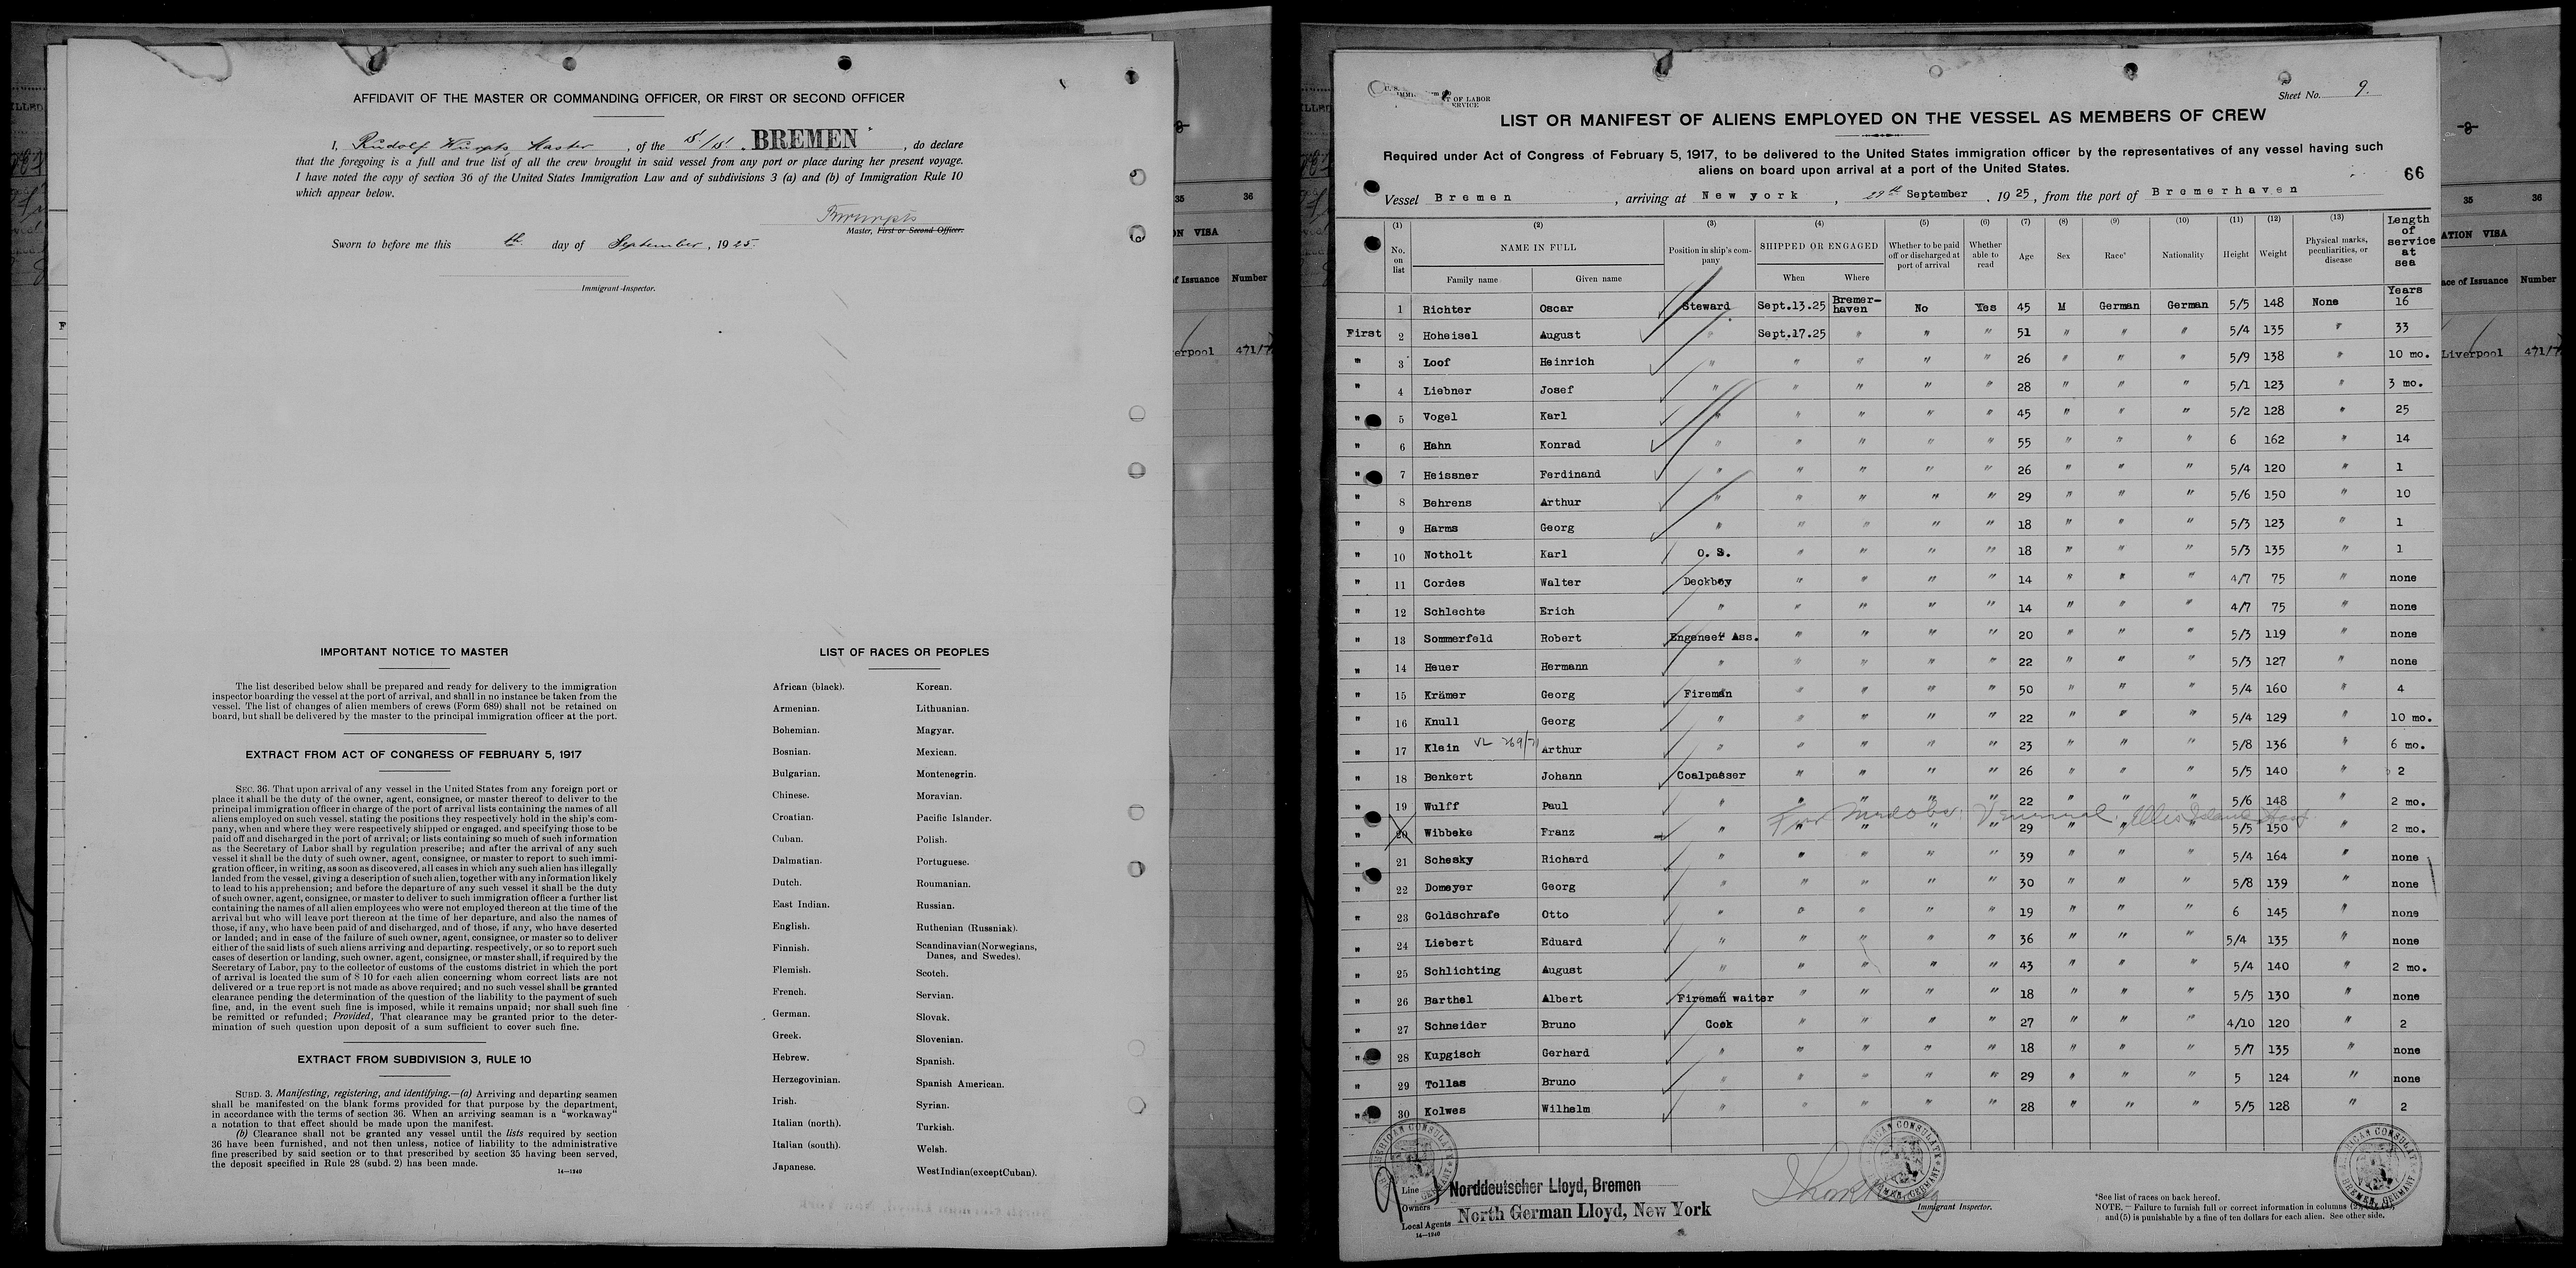 AFFIDAVIT OF THE MASTER OR COMMANDING OFFICER, OR FIRST OR SECOND OFFICER
I, Rudolf Wurpts, Master, of the S/S. BREMEN, do declare
that the foregoing is a full and true list of all the crew brought in said vessel from any port or place during her present voyage.
I have noted the copy of section 36 of the United States Immigration Law and of subdivisions 3 (a) and (b) of Immigration Rule 10
which appear below.
RWurpts
Master, First or Second Officer.
Sworn to before me this th day of September, 1925.
Immigrant Inspector.
IMPORTANT NOTICE TO MASTER
The list described below shall be prepared and ready for delivery to the immigration
inspector boarding the vessel at the port of arrival, and shall in no instance be taken from the
vessel. The list of changes of alien members of crews (Form 689) shall not be retained on
board, but shall be delivered by the master to the principal immigration officer at the port.
EXTRACT FROM ACT OF CONGRESS OF FEBRUARY 5, 1917
SEC. 36. That upon arrival of any vessel in the United States from any foreign port or
place it shall be the duty of the owner, agent, consignee, or master thereof to deliver to the
principal immigration officer in charge of the port of arrival lists containing the names of all
aliens employed on such vessel, stating the positions they respectively hold in the ship's com-
pany, when and where they were respectively shipped or engaged, and specifying those to be
paid off and discharged in the port of arrival; or lists containing so much of such information
as the Secretary of Labor shall by regulation prescribe; and after the arrival of any such
vessel it shall be the duty of such owner, agent, consignee, or master to report to such immi-
gration officer, in writing, as soon as discovered, all cases in which any such alien has illegally
landed from the vessel, giving a description of such alien, together with any information likely
to lead to his apprehension; and before the departure of any such vessel it shall be the duty
of such owner, agent, consignee, or master to deliver to such immigration officer a further list
containing the names of all alien employees who were not employed thereon at the time of the
arrival but who will leave port thereon at the time of her departure, and also the names of
those, if any, who have been paid of and discharged, and of those, if any, who have deserted
or landed; and in case of the failure of such owner, agent, consignee, or master so to deliver
either of the said lists of such aliens arriving and departing, respectively, or so to report such
cases of desertion or landing, such owner, agent, consignee, or master shall, if required by the
Secretary of Labor, pay to the collector of customs of the customs district in which the port
of arrival is located the sum of $ 10 for each alien concerning whom correct lists are not
delivered or a true report is not made as above required; and no such vessel shall be granted
clearance pending the determination of the question of the liability to the payment of such
fine, and, in the event such fine is imposed, while it remains unpaid; nor shall such fine
be remitted or refunded; Provided, That clearance may be granted prior to the deter-
mination of such question upon deposit of a sum sufficient to cover such fine.
EXTRACT FROM SUBDIVISION 3, RULE 10
SUBD. 3. Manifesting, registering, and identifying.—(a) Arriving and departing seamen
shall be manifested on the blank forms provided for that purpose by the department,
in accordance with the terms of section 36. When an arriving seaman is a "workaway"
a notation to that effect should be made upon the manifest.
(b) Clearance shall not be granted any vessel until the lists required by section
36 have been furnished, and not then unless, notice of liability to the administrative
fine prescribed by said section or to that prescribed by section 35 having been served,
the deposit specified in Rule 28 (subd. 2) has been made.
14—1240
LIST OF RACES OR PEOPLES
African (black). Korean.
Armenian. Lithuanian.
Bohemian. Magyar.
Bosnian. Mexican.
Bulgarian. Montenegrin.
Chinese. Moravian.
Croatian. Pacific Islander.
Cuban. Polish.
Dalmatian. Portuguese.
Dutch. Roumanian.
East Indian. Russian.
English. Ruthenian (Russniak).
Finnish. Scandinavian (Norwegians,
Danes, and Swedes).
Flemish. Scotch.
French. Servian.
German. Slovak.
Greek. Slovenian.
Hebrew. Spanish.
Herzegovinian. Spanish American.
Irish. Syrian.
Italian (north). Turkish.
Italian (south). Welsh.
Japanese. West Indian (except Cuban).
35 36
ON VISA
of Issuance Number
erpool 471/7
OF LABOR
SERVICE
Sheet No. 9.
LIST OR MANIFEST OF ALIENS EMPLOYED ON THE VESSEL AS MEMBERS OF CREW
Required under Act of Congress of February 5, 1917, to be delivered to the United States immigration officer by the representatives of any vessel having such
aliens on board upon arrival at a port of the United States.
66
Vessel Bremen, arriving at New york, 28th September, 1925, from the port of Bremerhaven
(1) (2) (3) (4) (5) (6) (7) (8) (9) (10) (11) (12) (13)
No. on list NAME IN FULL Position in ship's company SHIPPED OR ENGAGED Whether to be paid off or discharged at port of arrival Whether able to read Age Sex Race* Nationality Height Weight Physical marks, peculiarities, or disease Length of service at sea
Family name Given name When Where
Years
1 Richter Oscar Steward Sept.13.25 Bremer-haven No Yes 45 M German German 5/5 148 None 16
First 2 Hoheisel August " Sept.17.25 " " " 51 " " " 5/4 135 " 33
" 3 Loof Heinrich " " " " " 26 " " " 5/9 138 " 10 mo.
" 4 Liebner Josef " " " " " 28 " " " 5/1 123 " 3 mo.
" 5 Vogel Karl " " " " " 45 " " " 5/2 128 " 25
" 6 Hahn Konrad " " " " " 55 " " " 6 162 " 14
" 7 Heissner Ferdinand " " " " " 26 " " " 5/4 120 " 1
" 8 Behrens Arthur " " " " " 29 " " " 5/6 150 " 10
" 9 Harms Georg " " " " " 18 " " " 5/3 123 " 1
" 10 Notholt Karl O. S. " " " " 18 " " " 5/3 135 " 1
" 11 Cordes Walter Deckboy " " " " 14 " " " 4/7 75 " none
" 12 Schlechte Erich " " " " " 14 " " " 4/7 75 " none
" 13 Sommerfeld Robert Engeneer Ass. " " " " 20 " " " 5/3 119 " none
" 14 Heuer Hermann " " " " " 22 " " " 5/3 127 " none
" 15 Krämer Georg Fireman " " " " 50 " " " 5/4 160 " 4
" 16 Knull Georg " " " " " 22 " " " 5/4 129 " 10 mo.
" 17 Klein VL 269/71 Arthur " " " " " 23 " " " 5/8 136 " 6 mo.
" 18 Benkert Johann Coalpasser " " " " 26 " " " 5/5 140 " 2
" 19 Wulff Paul " " " " " 22 " " " 5/6 148 " 2 mo.
" 20 Wibbeke Franz " " " " " 29 " " " 5/5 150 " 2 mo.
" 21 Schesky Richard " " " " " 39 " " " 5/4 164 " none
" 22 Domeyer Georg " " " " " 30 " " " 5/8 139 " none
" 23 Goldschrafe Otto " " " " " 19 " " " 6 145 " none
" 24 Liebert Eduard " " " " " 36 " " " 5/4 135 " none
" 25 Schlichting August " " " " " 43 " " " 5/4 140 " 2 mo.
" 26 Barthel Albert Fireman waiter " " " " 18 " " " 5/5 130 " none
" 27 Schneider Bruno Cook " " " " 27 " " " 4/10 120 " 2
" 28 Kupgisch Gerhard " " " " " 18 " " " 5/7 135 " none
" 29 Tollas Bruno " " " " " 29 " " " 5 124 " none
" 30 Kolwes Wilhelm " " " " " 28 " " " 5/5 128 " 2
Line Norddeutscher Lloyd, Bremen
Owners
Local Agents North German Lloyd, New York
14—1240
Immigrant Inspector.
AMERICAN CONSULATE BREMEN, GERMANY
*See list of races on back hereof.
NOTE. – Failure to furnish full or correct information in columns
and (5) is punishable by a fine of ten dollars for each alien. See other side.
35 36
ATION VISA
ace of Issuance Number
Liverpool 471/7